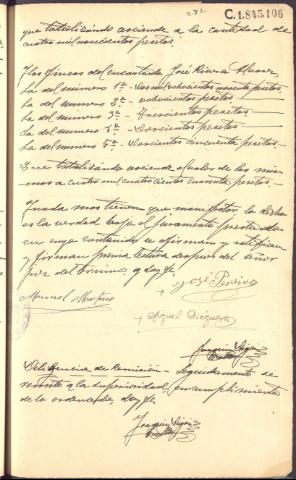 232
C.1.845.106
que totalizando asciende a la cantidad de
cuatro mil novecientas pesetas.
Las fincas del encartado José Rivera Alvarez,
La del número 1º Dos mil ochocientas noventa pesetas.
La del número 2º ochocientas pesetas.
La del número 3º Trescientas pesetas.
La del número 4º Doscientas pesetas.
La del número 5º Doscientas cincuenta pesetas.
Que totalizando asciende el valor de las mis-
mas a cuatro mil cuatrocientas cuarenta pesetas.
Y nada mas tienen que manifestar, lo dicho
es la verdad bajo el juramento prestado
en cuyo contenido se afirman y ratifican
y firman previa lectura despues del señor
Juez del mismo, y doy fe.
José Pereira
Manuel Martinez
Miguel Diéguez
Joaquin
Diligencia de Remisión - Seguidamente se
remite a la Superioridad en cumplimiento
de lo ordenado, doy fe.
Joaquin